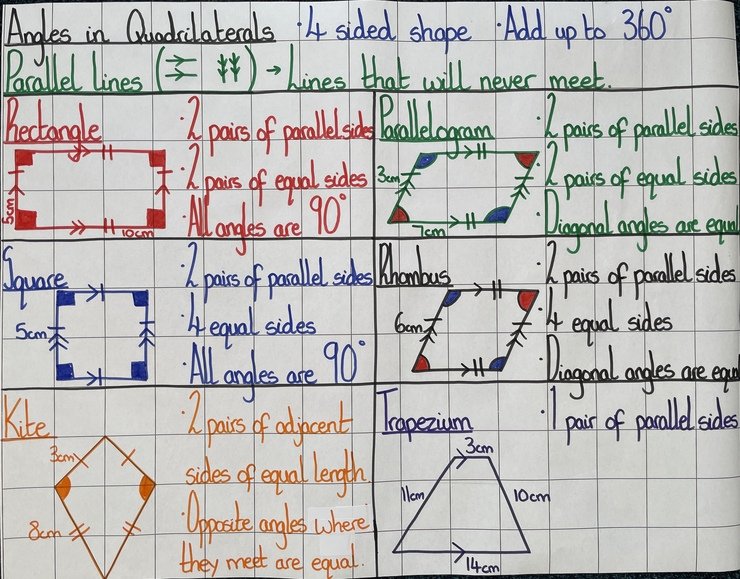 Angles in Quadrilaterals · 4 sided shape · Add up to 360°
Parallel lines ( ) → Lines that will never meet.
Rectangle
· 2 pairs of parallel sides
· 2 pairs of equal sides
· All angles are 90°
5cm
10cm
Parallelogram
· 2 pairs of parallel sides
· 2 pairs of equal sides
· Diagonal angles are equal
3cm
7cm
Square
· 2 pairs of parallel sides
· 4 equal sides
· All angles are 90°
5cm
Rhombus
· 2 pairs of parallel sides
· 4 equal sides
· Diagonal angles are equal
6cm
Kite
· 2 pairs of adjacent
sides of equal length.
· Opposite angles where
they meet are equal.
3cm
8cm
Trapezium
· 1 pair of parallel sides
3cm
11cm
10cm
14cm